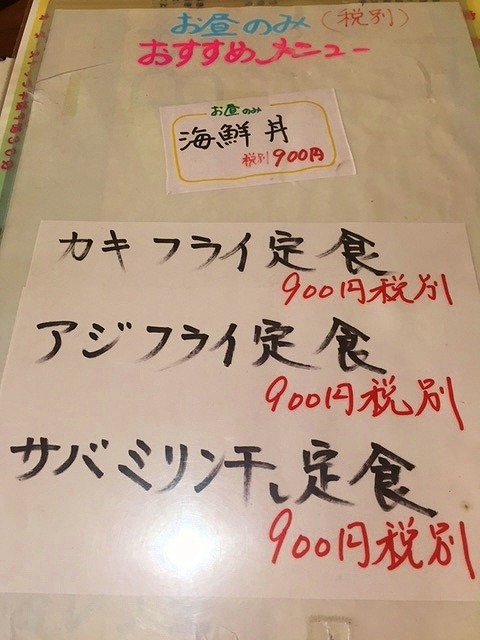 お昼のみ(税別)
おすすめメニュー
お昼のみ
海鮮丼
税別900円
カキフライ定食
900円税別
アジフライ定食
900円税別
サバミリン干し定食
900円税別